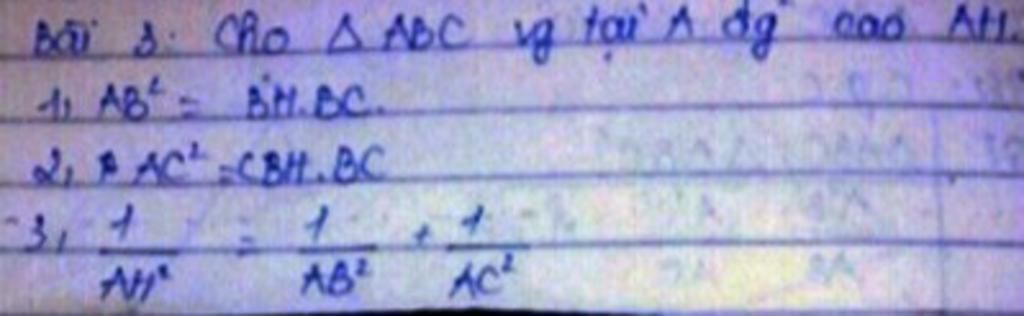 Bài 3: Cho Δ ABC vg tại A đg cao AH.
1, AB² = BH.BC.
2, AC² = CBH.BC
3, 1/AH² = 1/AB² + 1/AC²